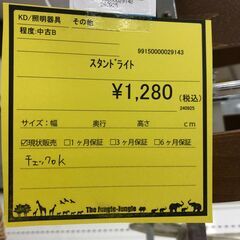 KD/照明器具 その他
程度:中古B
99150000029143
スタンドライト
¥1,280(税込)
240925
サイズ:幅 奥行 高さ cm
☑現状販売 □1ヶ月保証 □3ヶ月保証 □6ヶ月保証
チェックok
The Jungle-Jungle